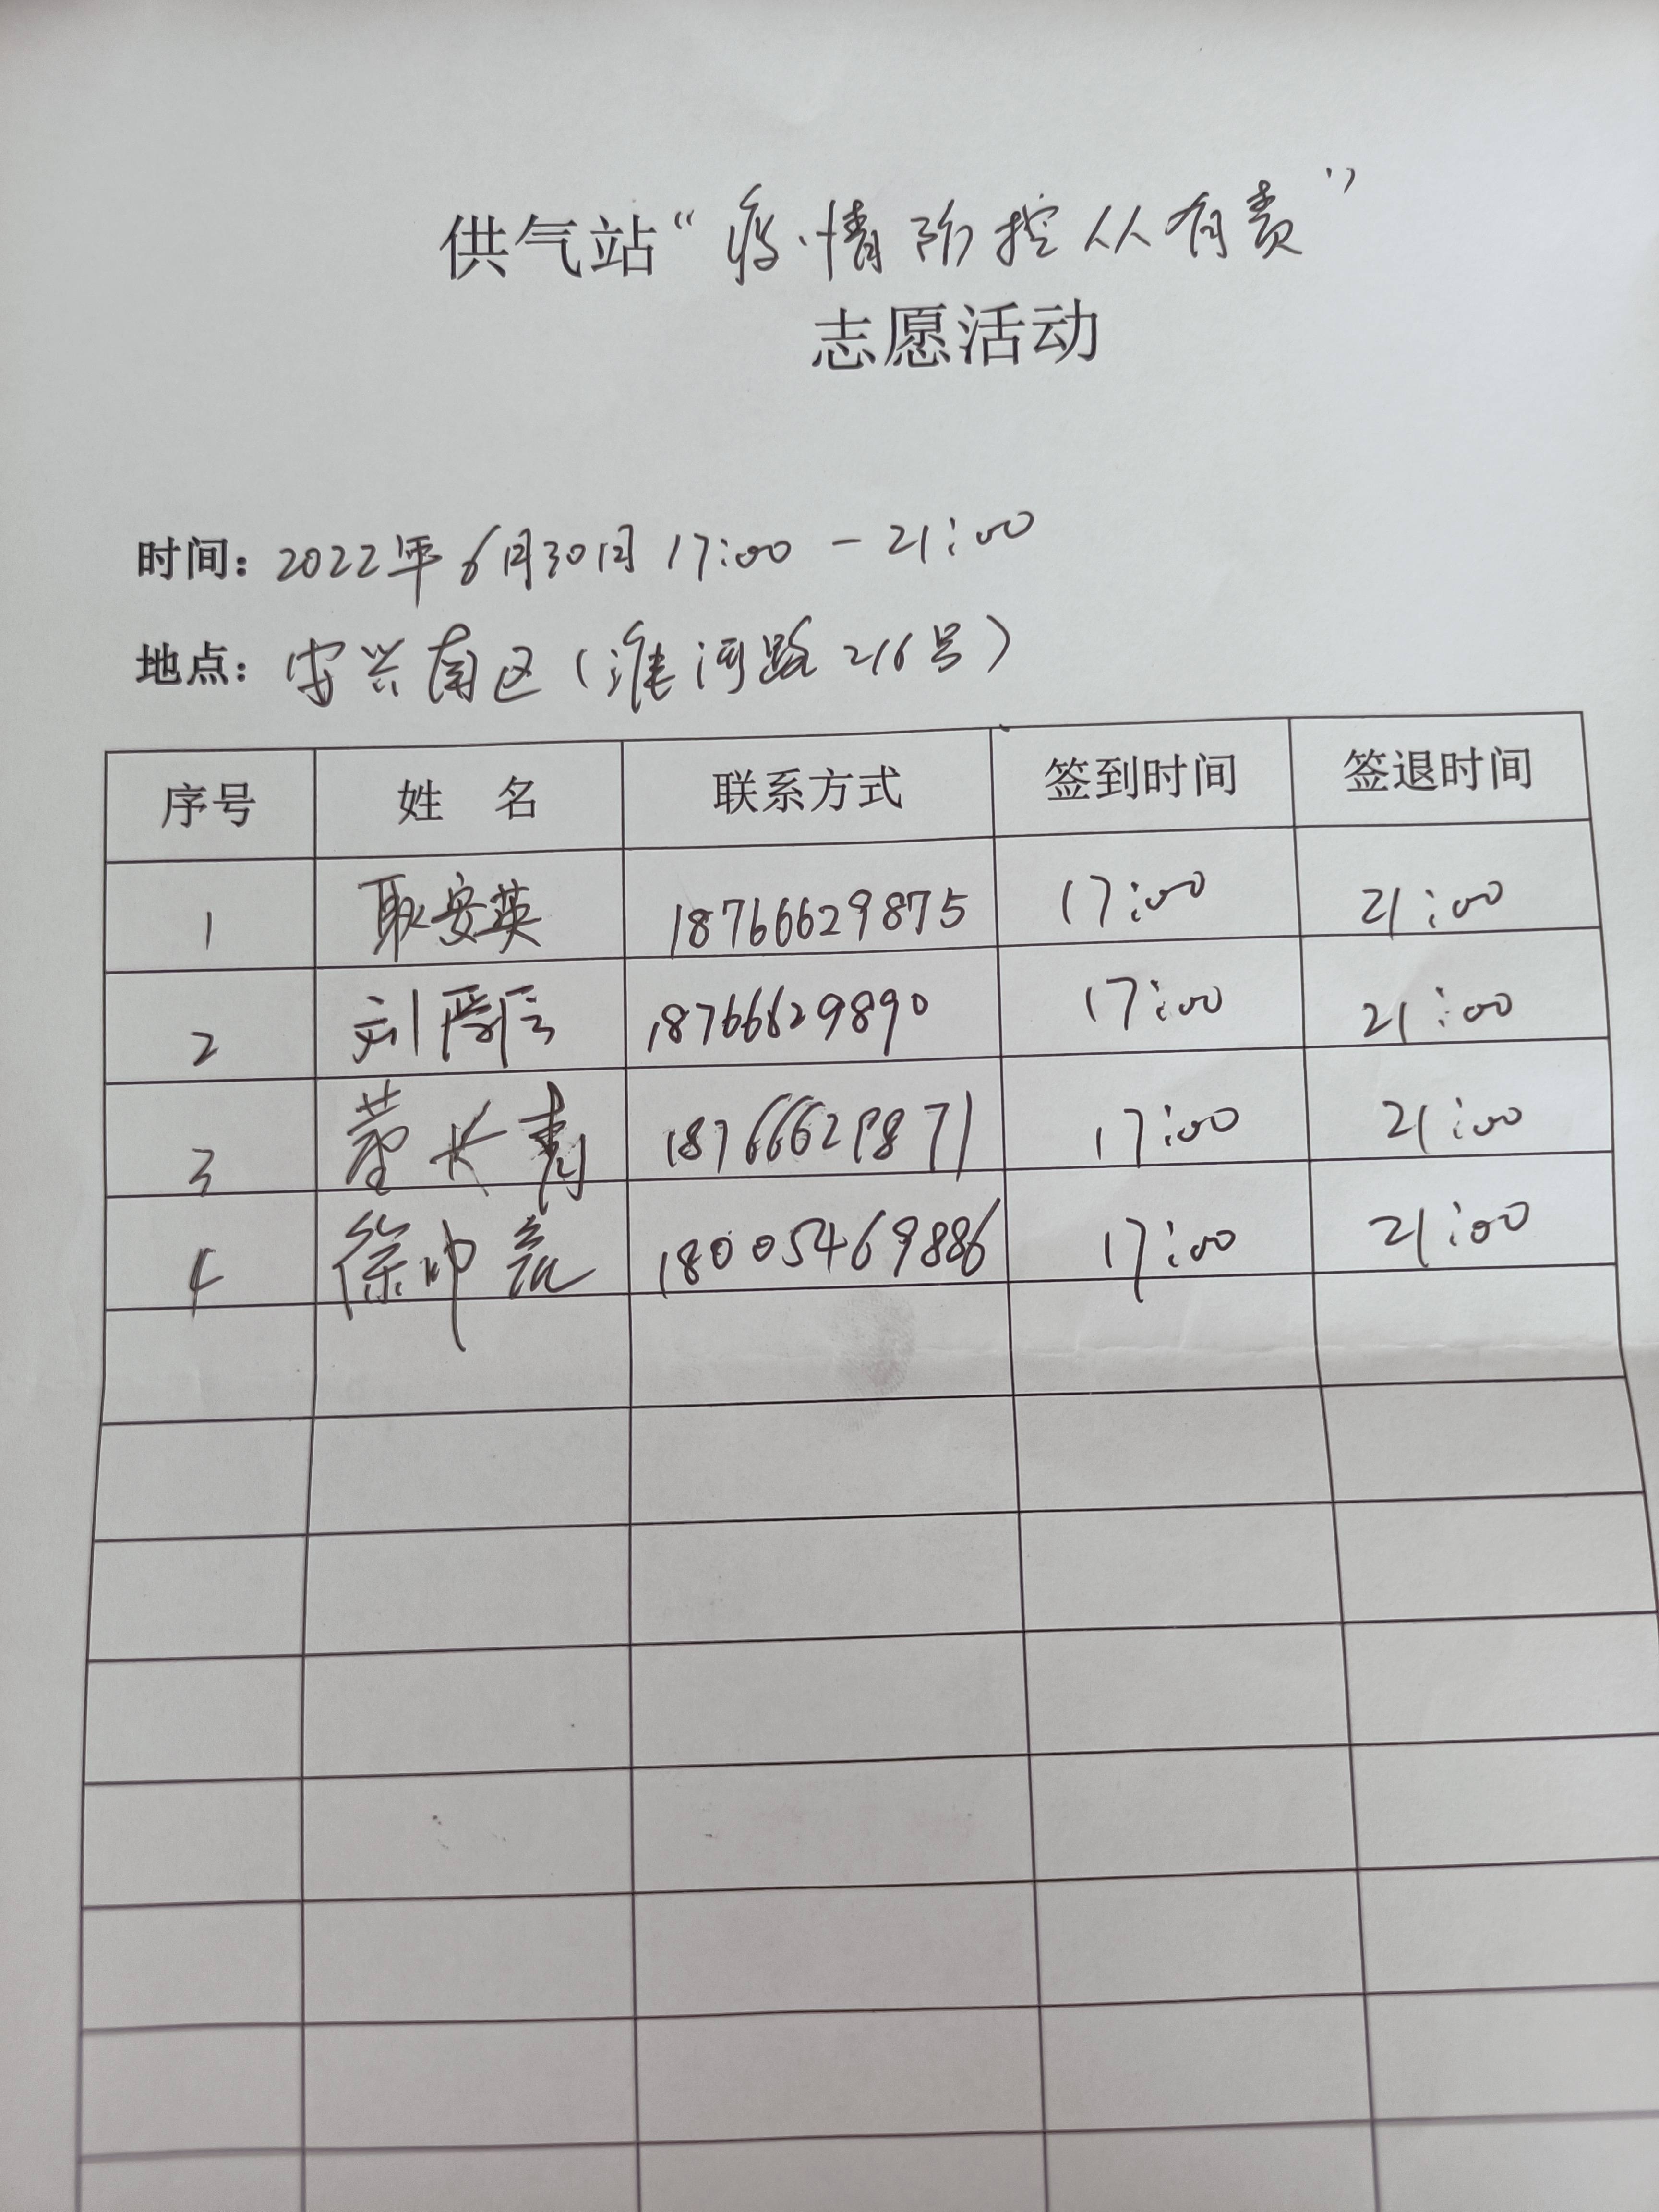 供气站“疫情防控人人有责”
志愿活动
时间：2022年6月30日 17:00 - 21:00
地点：安兴南区（淮河路216号）
序号 姓 名 联系方式 签到时间 签退时间
1 耿安英 18766629875 17:00 21:00
2 刘 18766629890 17:00 21:00
3 董长青 18766629871 17:00 21:00
4 徐帅 18005469886 17:00 21:00